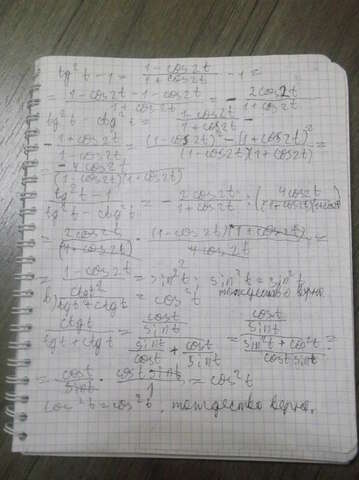 tg²t - 1 = (1 - cos2t)/(1 + cos2t) - 1 =
= (1 - cos2t - 1 - cos2t)/(1 + cos2t) = - 2cos2t/(1 + cos2t)
tg²t - ctg²t = (1 - cos2t)/(1 + cos2t) -
- (1 + cos2t)/(1 - cos2t) = ((1 - cos2t)² - (1 + cos2t)²)/((1 - cos2t)(1 + cos2t)) =
= - 4cos2t/((1 - cos2t)(1 + cos2t))
(tg²t - 1)/(tg²t - ctg²t) = - 2cos2t/(1 + cos2t) : (4cos2t/((1 + cos2t)(1 - cos2t)))
= 2cos2t/(1 + cos2t) · (1 - cos2t)(1 + cos2t)/4cos2t =
= (1 - cos2t)/2 = sin²t; sin²t = sin²t
б) ctgt/(tgt + ctgt) = cos²t тождество верно.
ctgt/(tgt + ctgt) = (cost/sint)/(sint/cost + cost/sint) = (cost/sint)/((sin²t + cos²t)/(cost sint)) =
= cost/sint · (cost sint)/1 = cos²t
cos²t = cos²t, тождество верно.